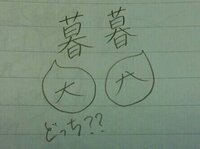 暮 暮
大
どっち??